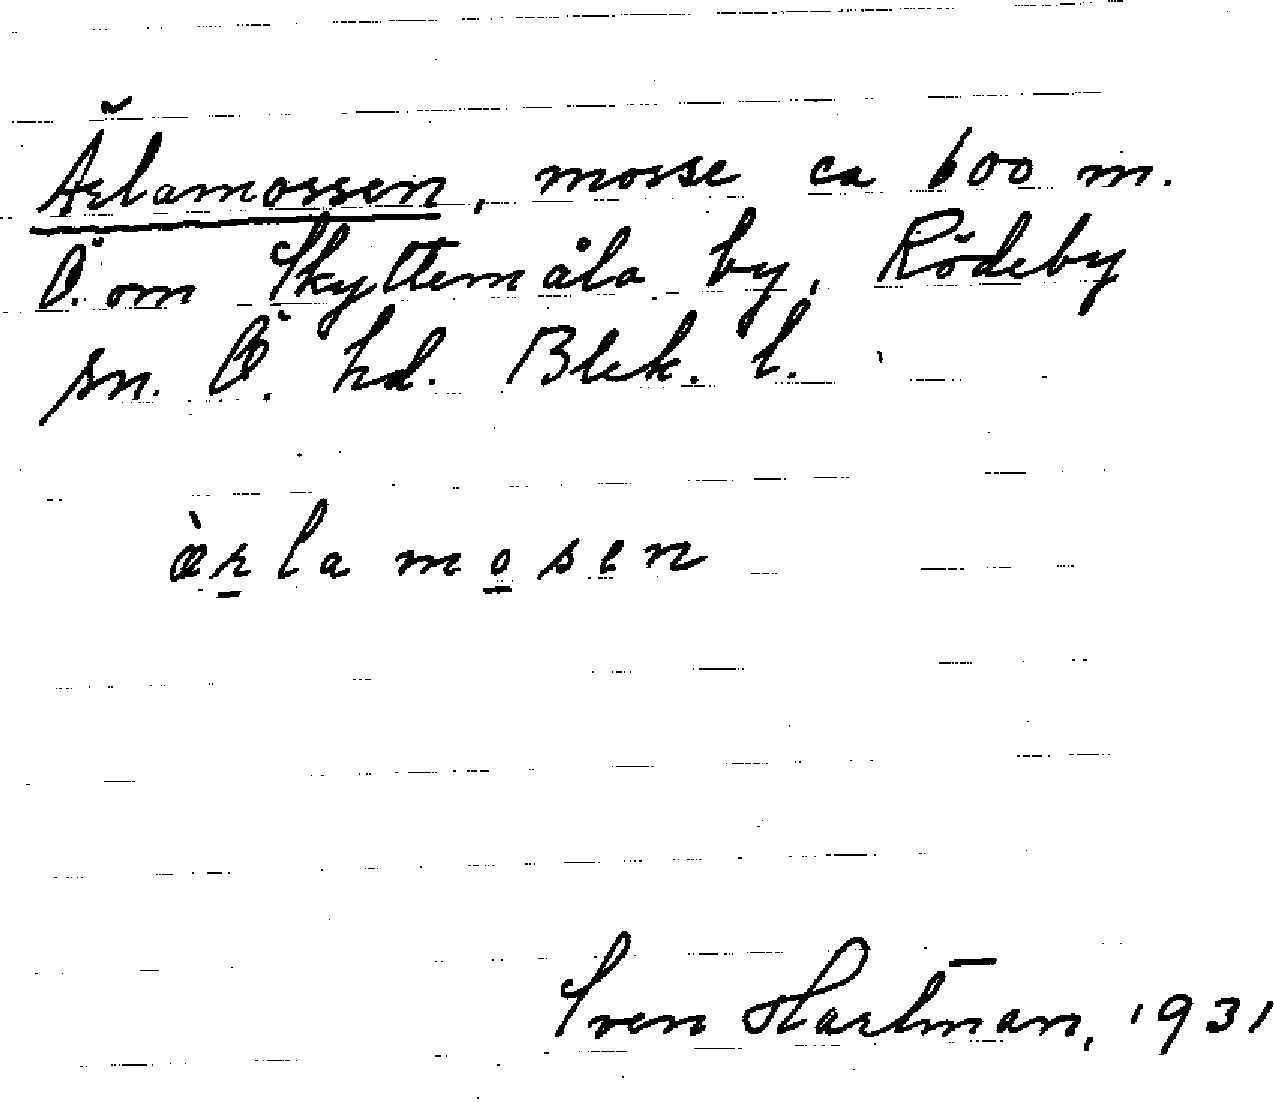 Ärlamossen, mosse ca 600 m.
Ö. om Skyttemåla by, Rödeby
sn. Ö. hd. Blek. l.
æ̀r̲la mo̲sen
Sven Hartman, 1931